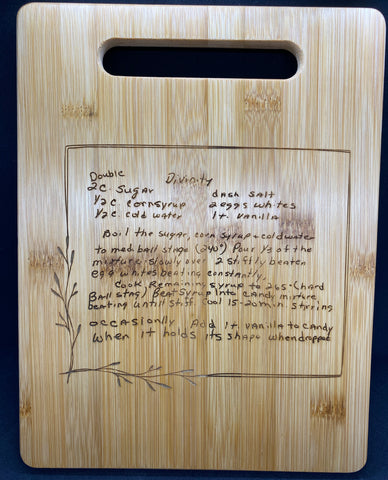 Double
Divinity
2C Sugar
dash salt
1/2 C cornsyrup
2 eggs whites
1/2 C cold water
1 t. vanilla
Boil the sugar, corn syrup + cold water
to med. ball stage (240°) Pour 1/3 of the
mixture slowly over 2 stiffly beaten
egg whites beating constantly.
Cook Remaining syrup to 265° (hard
Ball stag) Beat Syrup Into candy mixture
beating until stiff Cool 15-20 min stirring
occasionally Add 1 t. vanilla to candy
when it holds its shape when dropped